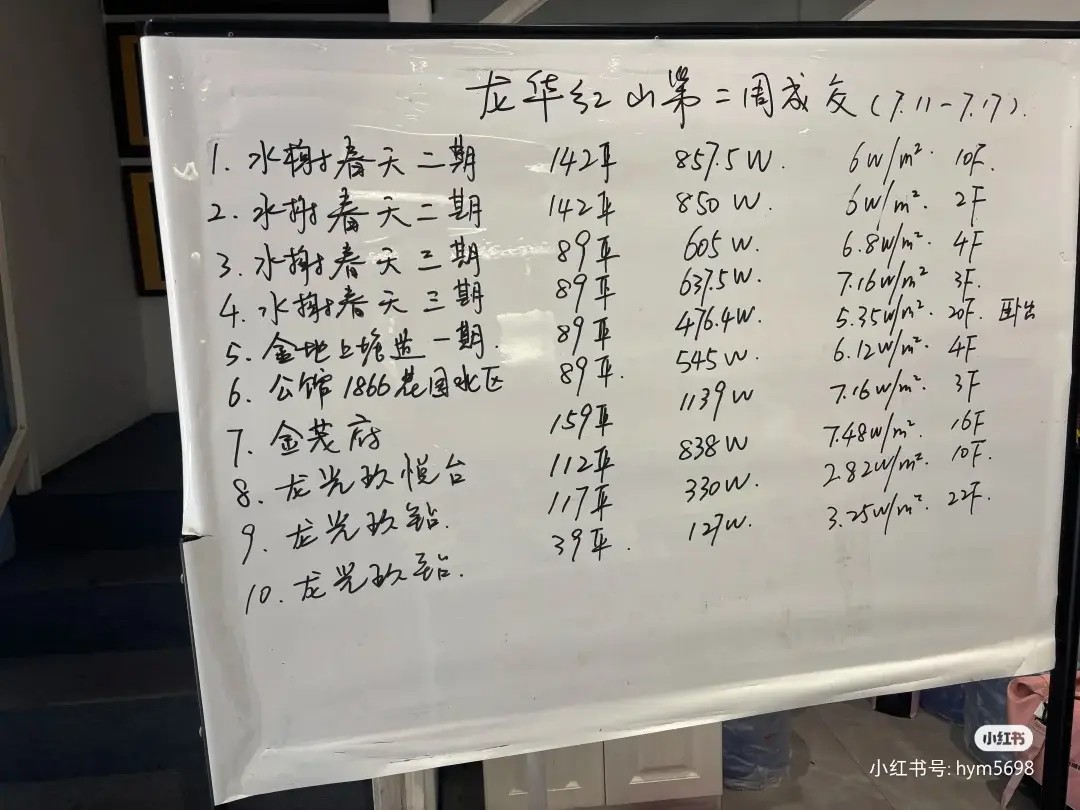 龙华红山第二周成交(7.11-7.17).
1. 水榭春天二期 142平 857.5W. 6w/m². 10F.
2. 水榭春天二期 142平 850W. 6w/m². 2F
3. 水榭春天三期 89平 605W. 6.8w/m². 4F
4. 水榭春天三期 89平 637.5W. 7.16w/m² 3F.
5. 金地上塘道一期. 89平 476.4W. 5.35w/m². 20F. 卧出
6. 公馆1866花园北区 89平. 545W. 6.12w/m². 4F
7. 金茂府 159平 1139W 7.16w/m². 3F
8. 龙光玖悦台 112平 838W 7.48w/m². 16F
9. 龙光玖钻. 117平 330W. 2.82w/m². 10F.
10. 龙光玖钻. 39平. 127W. 3.25w/m². 22F.
小红书
小红书号: hym5698